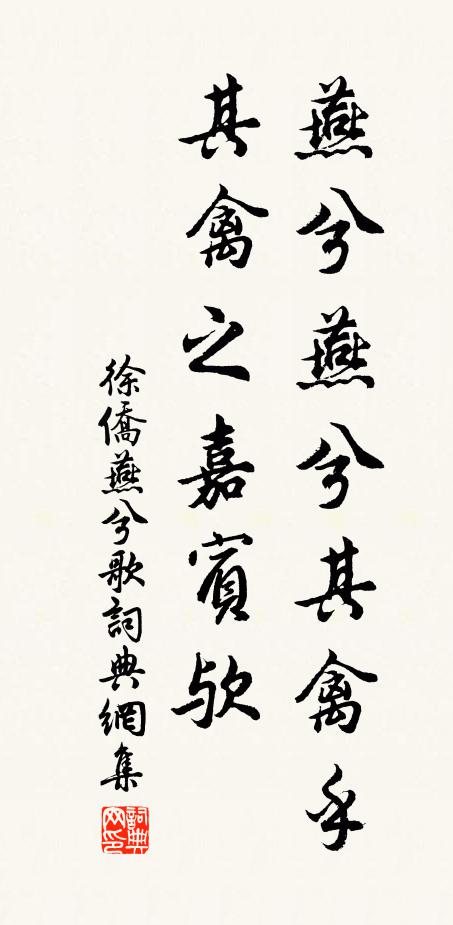 燕兮燕兮其禽乎
其禽之嘉賓欤
徐僑燕兮歌詞典網集
詞典网印